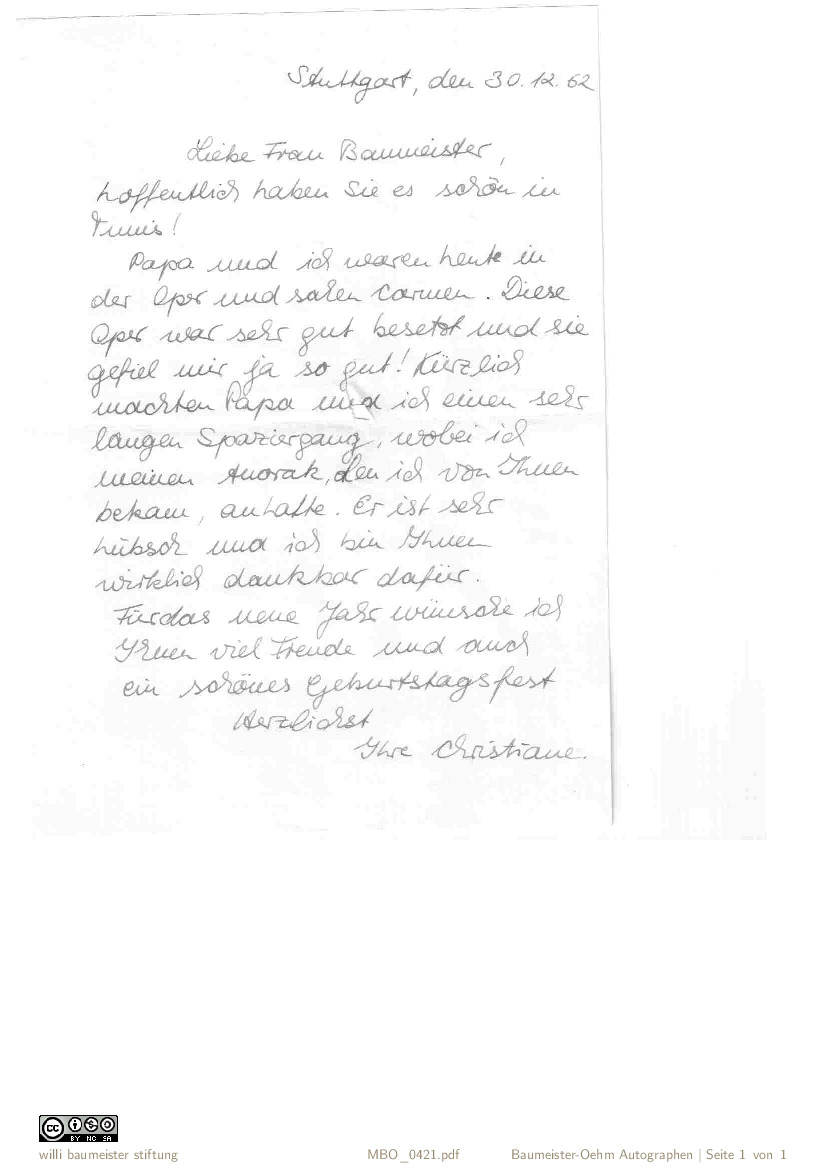 Stuttgart, den 30.12.62
Liebe Frau Baumeister,
hoffentlich haben Sie es schön in
Tunis!
Papa und ich waren heute in
der Oper und sahen Carmen. Diese
Oper war sehr gut besetzt und sie
gefiel mir ja so gut! Kürzlich
machten Papa und ich einen sehr
langen Spaziergang, wobei ich
meinen Anorak, den ich von Ihnen
bekam, anhatte. Er ist sehr
hübsch und ich bin Ihnen
wirklich dankbar dafür.
Für das neue Jahr wünsche ich
Ihnen viel Freude und auch
ein schönes Geburtstagsfest
Herzlichst
Ihre Christiane.
cc BY NC SA
willi baumeister stiftung MBO_0421.pdf Baumeister-Oehm Autographen | Seite 1 von 1